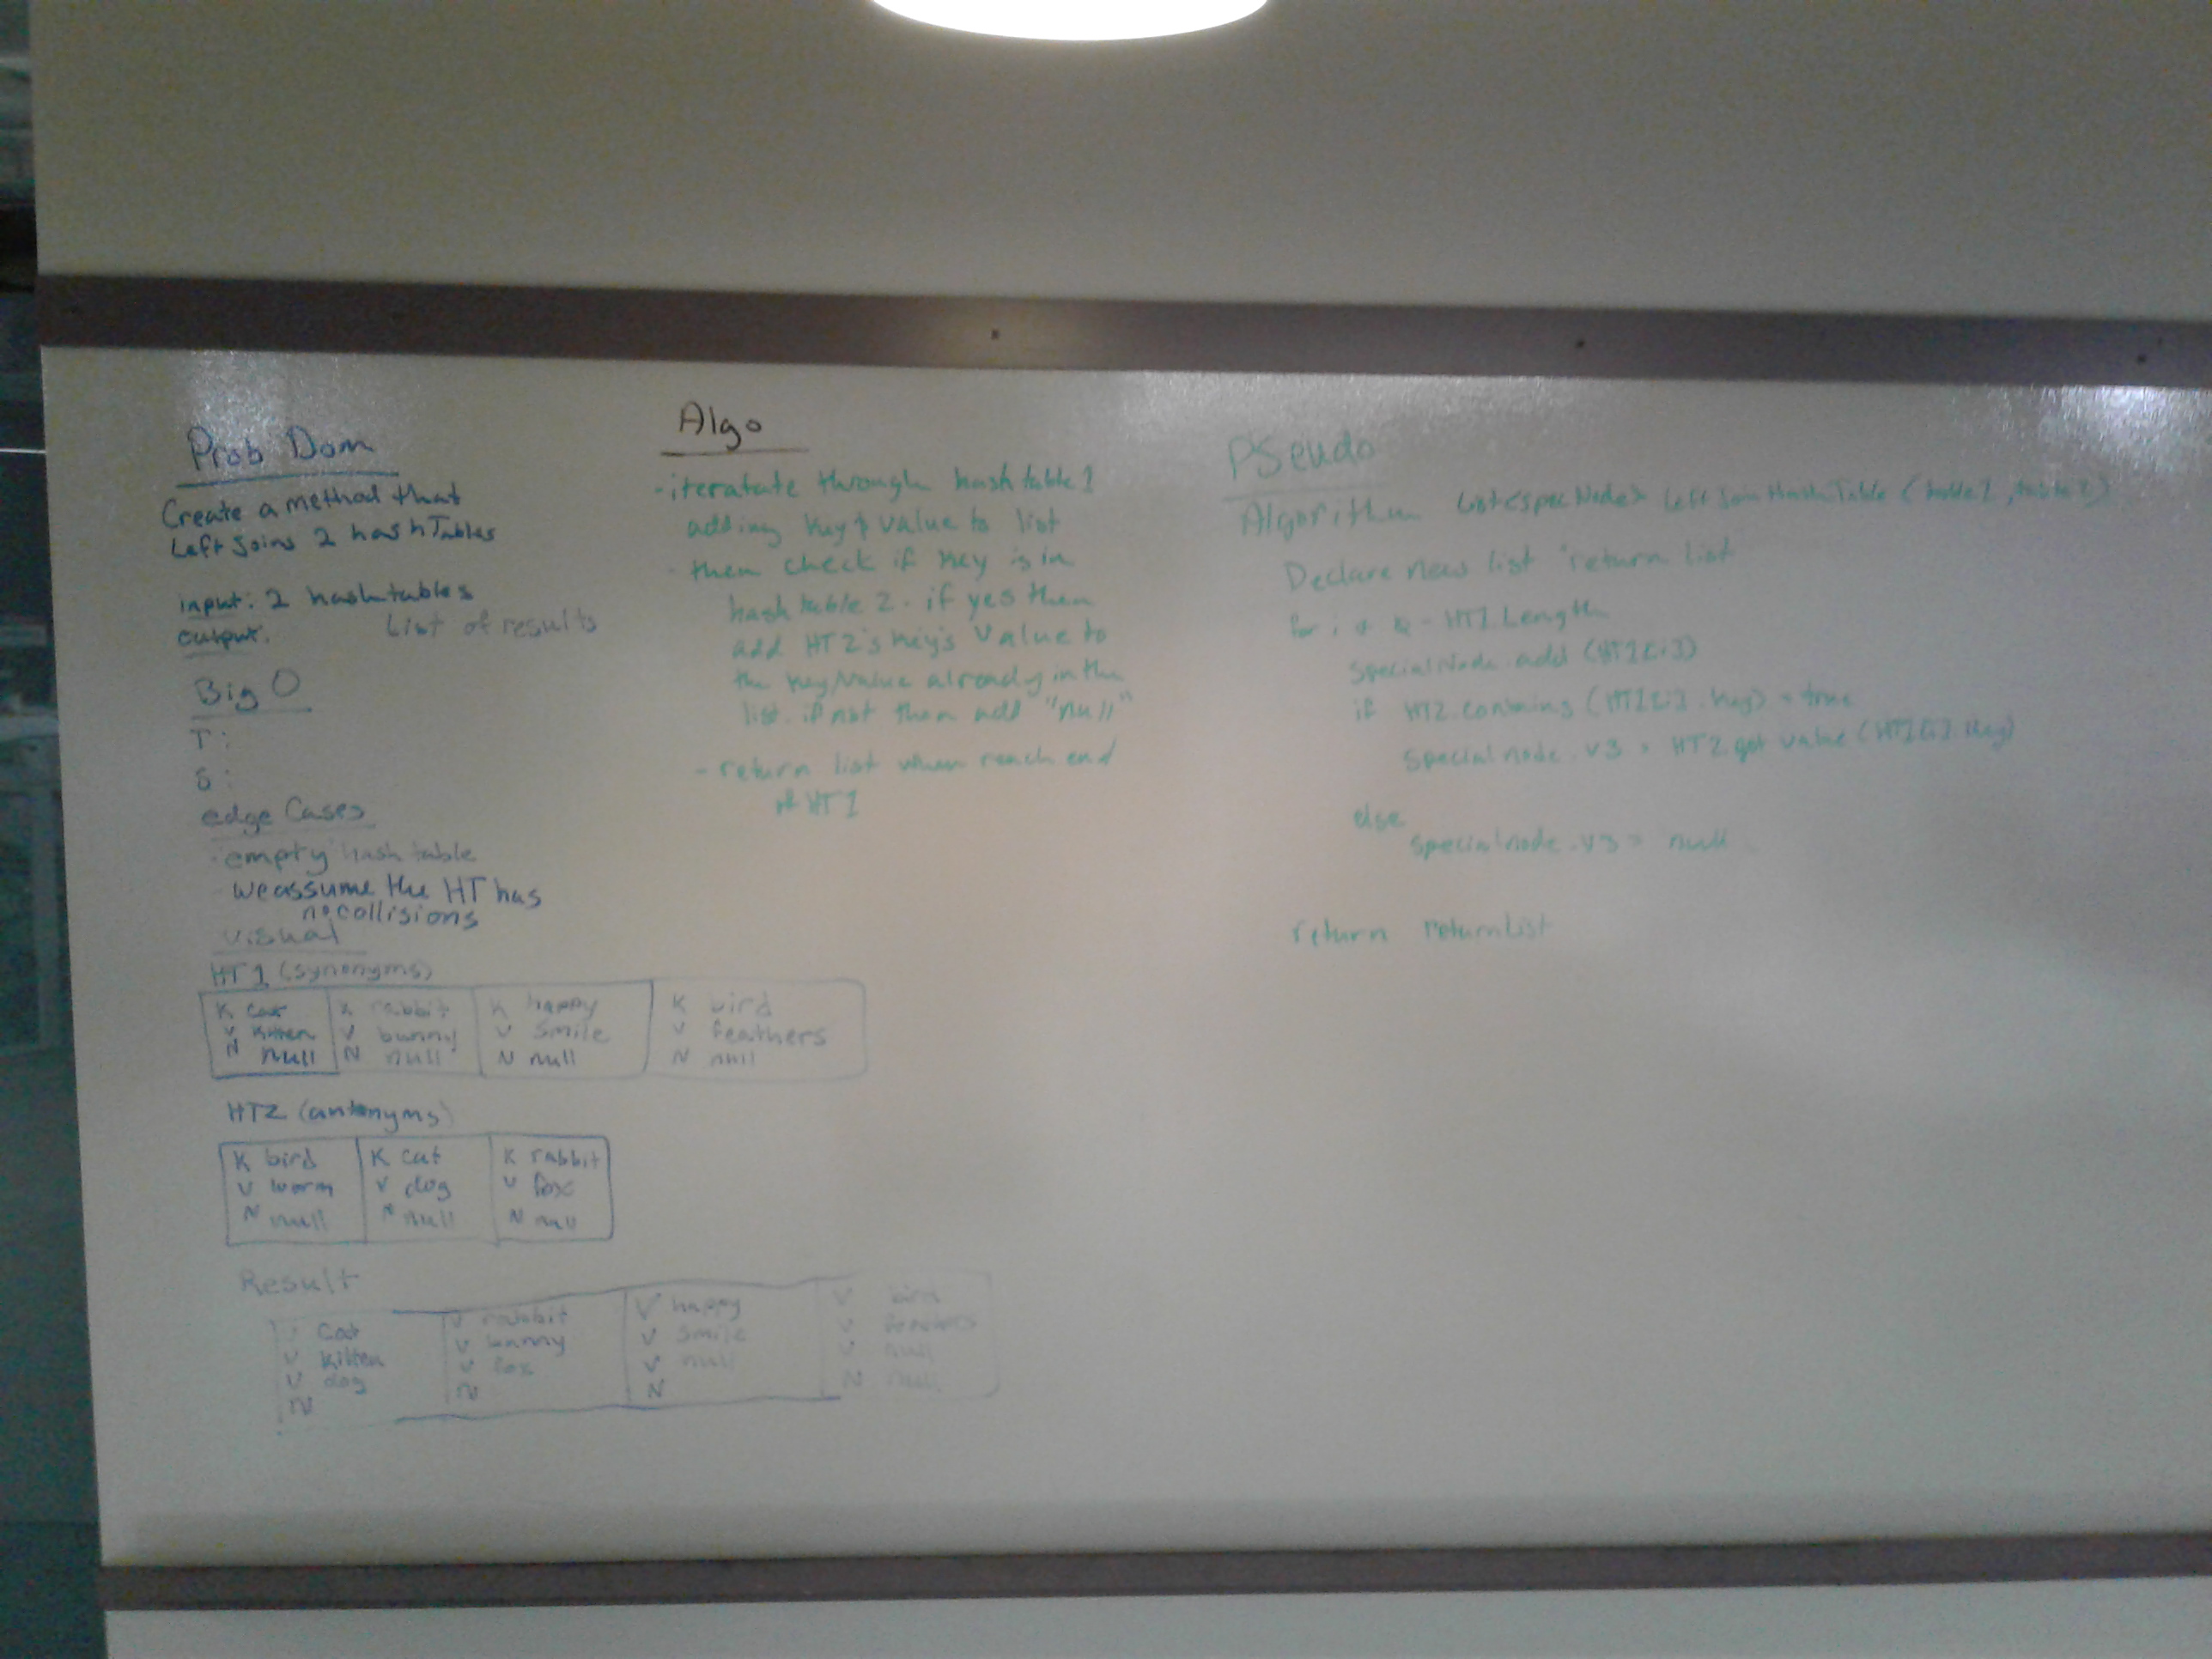 Prob Dom
Create a method that
Left Joins 2 hashTables
input: 2 hashtables
output: List of results
Big O
T:
S:
edge Cases
- empty hash table
- we assume the HT has
no collisions
visual
HT1 (synonyms)
K cat K rabbit K happy K bird
V kitten V bunny V smile V feathers
N null N null N null N null
HT2 (antonyms)
K bird K cat K rabbit
V worm V dog V fox
N null N null N null
Result
V cat V rabbit V happy V bird
V kitten V bunny V smile V feathers
V dog V fox V null V null
N N N N null
Algo
- iteratate through hash table 1
adding key & value to list
- then check if key is in
hash table 2. if yes then
add HT2's key's value to
the key/value already in the
list. if not then add "null"
- return list when reach end
of HT1
PSeudo
Algorithm List<specNode> LeftJoinHashTable (table1, table2)
Declare new list "return list
for i HT1.Length
SpecialNode.add (HT1[i])
if HT2.contains (HT1[i].key) = true
Special node.v3 = HT2.get value (HT1[i].key)
else
Specialnode.v3 = null
return returnList